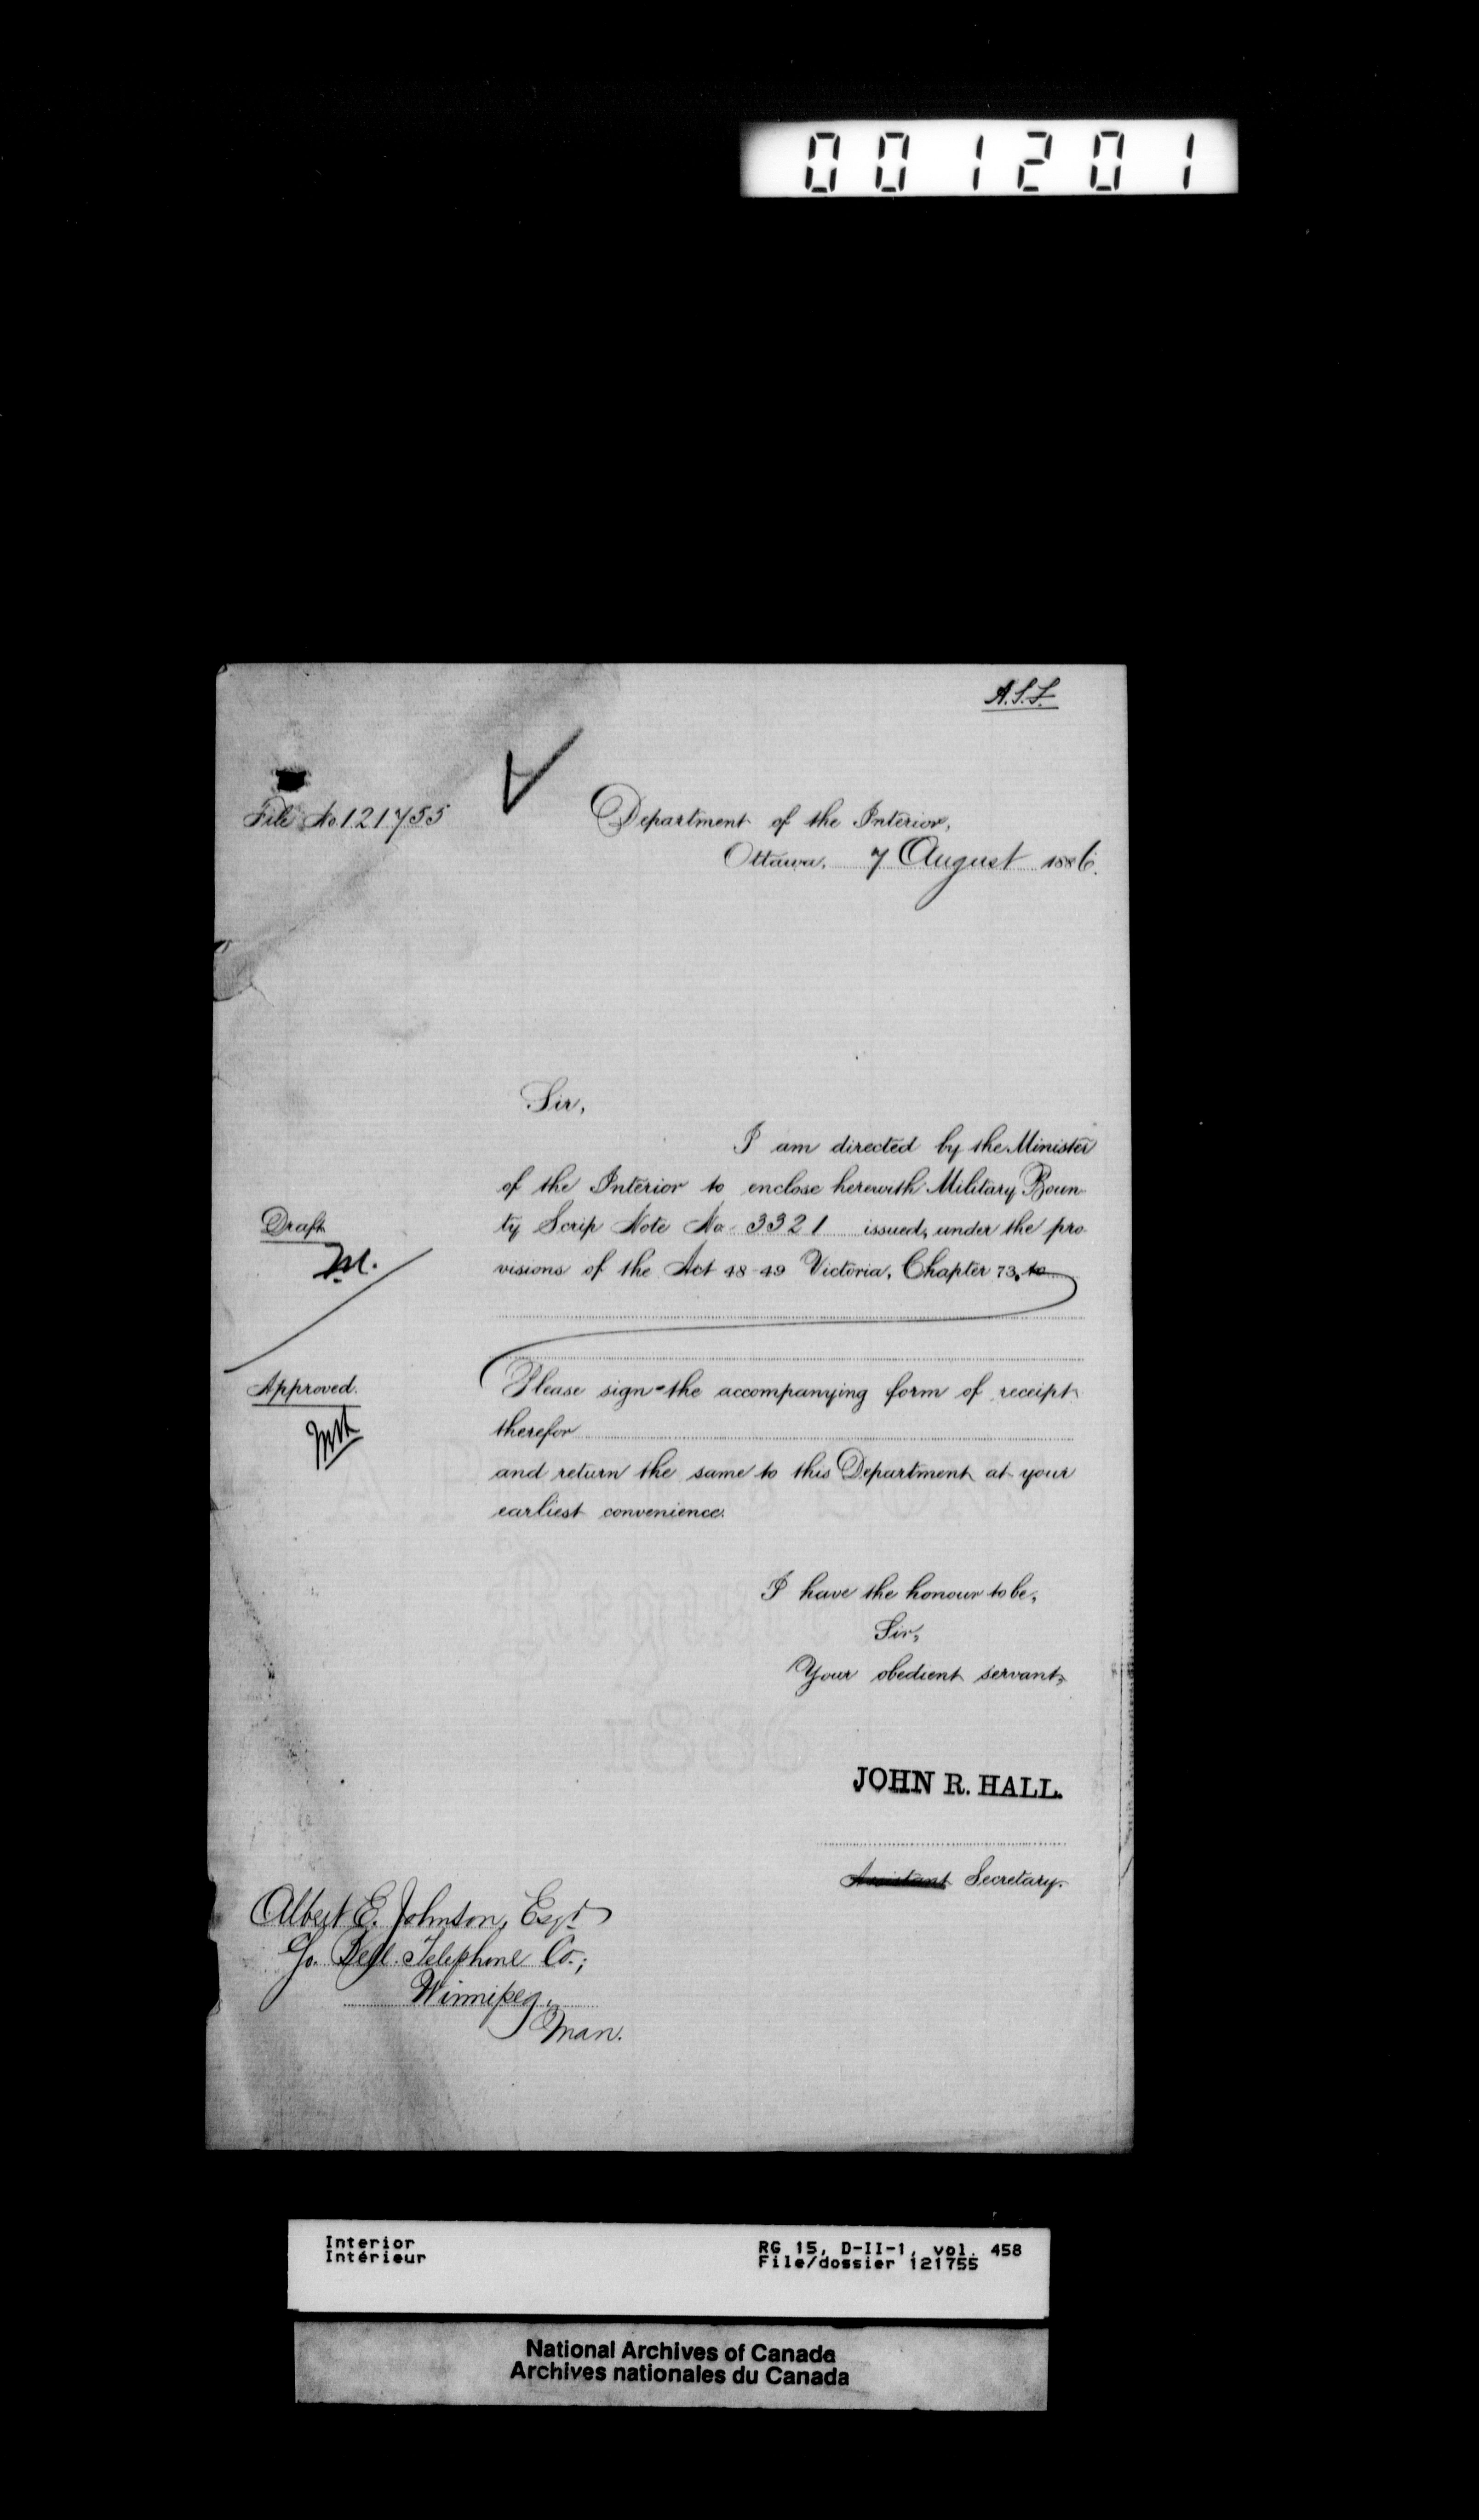 001201
A.S.S.
File No. 121755
Department of the Interior,
Ottawa, 7 August 1886.
Sir,
I am directed by the Minister
of the Interior to enclose herewith Military Boun-
ty Scrip Note No. 3321 issued, under the pro-
visions of the Act 48-49 Victoria, Chapter 73, to
Draft
M.
Approved.
Please sign the accompanying form of receipt
therefor
and return the same to this Department at your
earliest convenience.
I have the honour to be,
Sir,
Your obedient servant,
JOHN R. HALL.
Assistant Secretary.
Albert E. Johnson, Esqr.
c/o. Bell Telephone Co.;
Winnipeg,
Man.
Interior
Intérieur
RG 15, D-II-1, vol. 458
File/dossier 121755
National Archives of Canada
Archives nationales du Canada